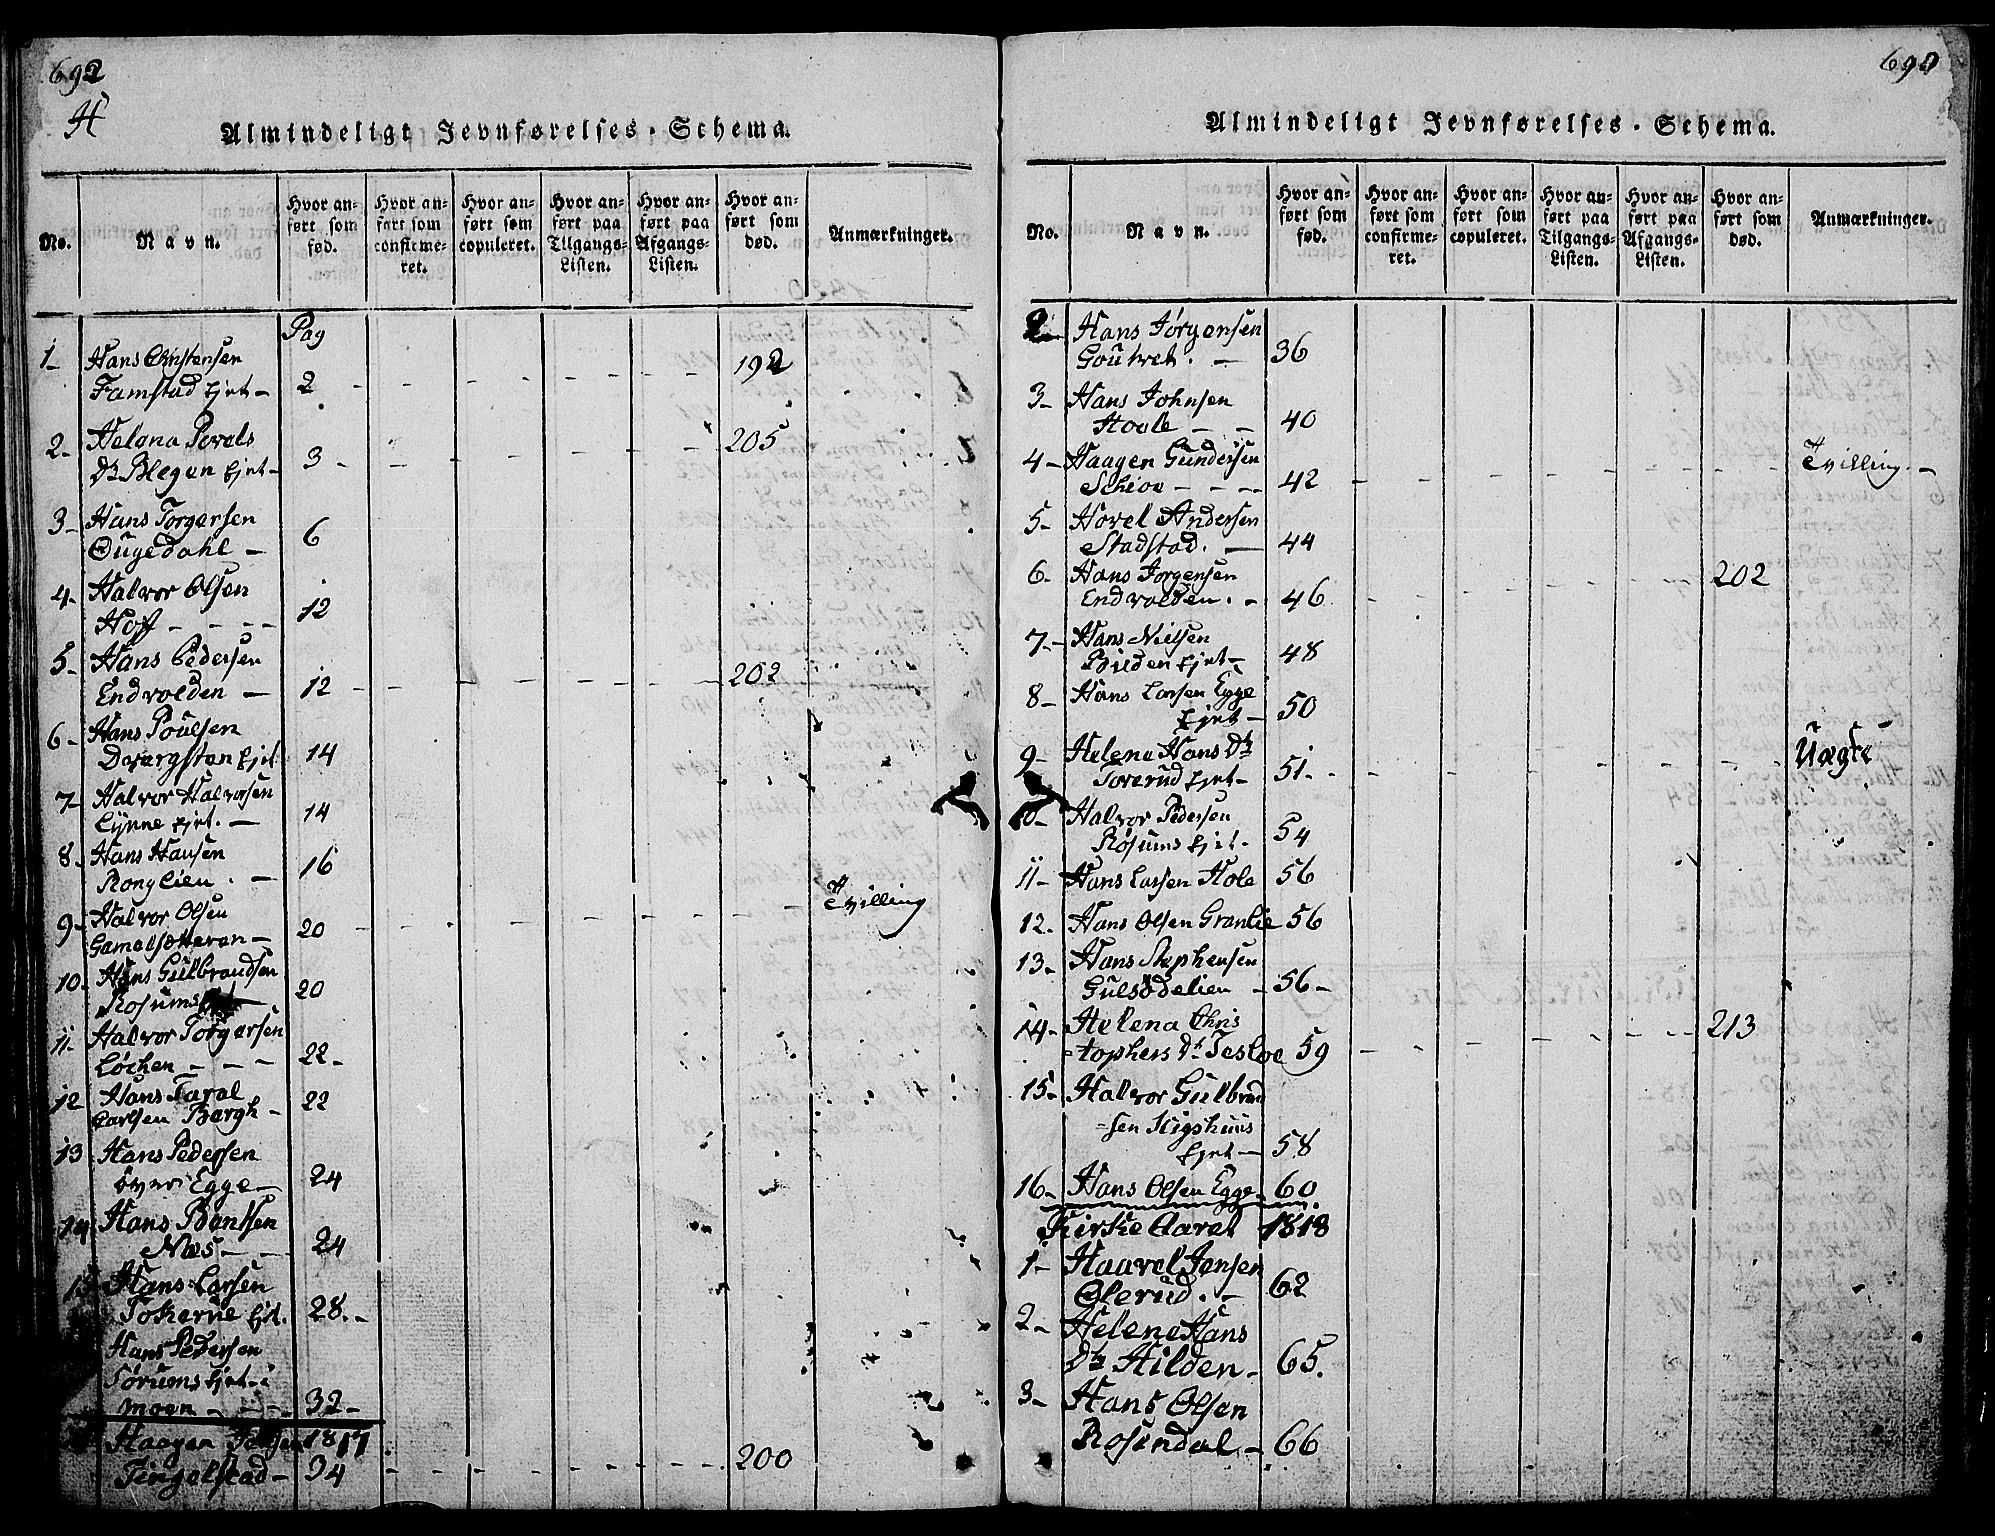 692
H
Almindeligt Jevnførelses-Schema.
No.
Navn.
Hvor anført som fød.
Hvor anført som confirmeret.
Hvor anført som copuleret.
Hvor anført paa Tilgangs-Listen.
Hvor anført paa Afgangs-Listen.
Hvor anført som død.
Anmærkninger.
Pag
1- Hans Christensen
Framstad Ejet- 2 - - - - - - - 192
2- Helena Povels
Dr. Blegen Ejet- 3 - - - - - - - 205
3- Hans Torgersen
Ougedahl - 6
4- Halvor Olsen
Hoff - - - - 12
5- Hans Pedersen
Endvolden - 12 - - - - - - - 202
6- Hans Poulsen
Dvergsten Ejet 14
7- Halvor Halvorsen
Lynne Ejet. - 14
8- Hans Hansen
Ronglien. - 16
9- Halvor Olsen
Gamelsætteren - 20 - - - - - - - Tvilling
10- Hans Gulbrandsen
Rosums 20
11- Halvor Torgersen
Løchen - - - 22-
12 Hans Taral
Carlsen Bergh - 22
13 Hans Pedersen
øvre Egge - 24
14 Hans Bentsen
Næs - - 24
15 Hans Larsen
Tokerue Ejt. 28.-
Hans Pedersen
Sørums Ejet i
moen - - - - 32-
Haagen 1817
Tingelstad - 34 - - - - - - - 200
690
Almindeligt Jevnførelses-Schema.
No.
Navn.
Hvor anført som fød.
Hvor anført som confirmeret.
Hvor anført som copuleret.
Hvor anført paa Tilgangs-Listen.
Hvor anført paa Afgangs-Listen.
Hvor anført som død.
Anmærkninger.
2 Hans Jørgensen
- 36
3- Hans Johnsen
Hoole - - 40
4- Haagen Gundersen
Schiov - - - 42 - - - - - - - Tvilling. -
5- Hovel Andersen
Stadstad. - 44
6- Hans Jorgensen
Endvolden. - 46 - - - - - - - 202
7- Hans Nielsen
Bilden Ejet - 48
8- Hans Larsen Egge
Ejet - 50
9- Helene Hans Dr
Torerud Ejet - 51 - - - - - - - Uægte
10- Halvor Pedersen
Røsums Ejet. 54
11- Hans Larsen Hole 56
12. Hans Olsen Granlie 56
13- Hans Stephensen
Gulsødelien - 56-
14- Helena Chris
=tophers Dr. Tesloe 59 - - - - - - - 213
15- Halvor Gulbrand
=sen
Ejet - 58
16- Hans Olsen Egge - 60
Kirke Aaret 1818
1- Haavel Jensen
Olerud. - 62
2- Helene Hans
Dr Hilden - 65.
3- Hans Olsen
Rosendal - 66